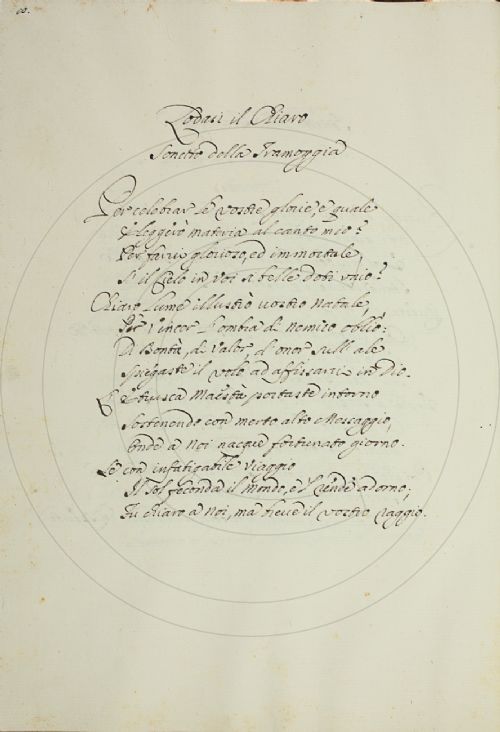 60.
Lodasi il Chiaro
Sonetto della Tramoggia
Per celebrar le vostre glorie, e quale
Eleggerò materia al canto mio?
Per farvi glorioso, ed immortale,
Si il Cielo in voi a belle doti unio?
Chiaro lume illustrò vostro natale
Per vincer l'ombra di nemico oblio:
Di Bontà, di valor, d'onor sull'ale
Spiegaste il volo ad affissarvi in Dio.
E Etrusca Maestà portaste intorno
Sostenendo con merto alto Messaggio,
Onde a Noi nacque fortunato giorno.
Se con infatigabile viaggio
Il Sol feconda il mondo, e 'l rende adorno;
Fu chiaro a Noi, ma breve il vostro raggio.